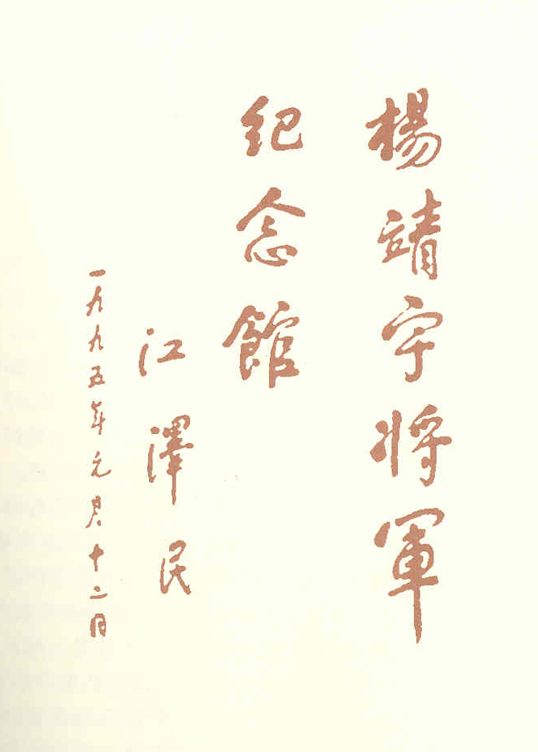 楊靖宇將軍
紀念館
江澤民
一九九五年元月十二日